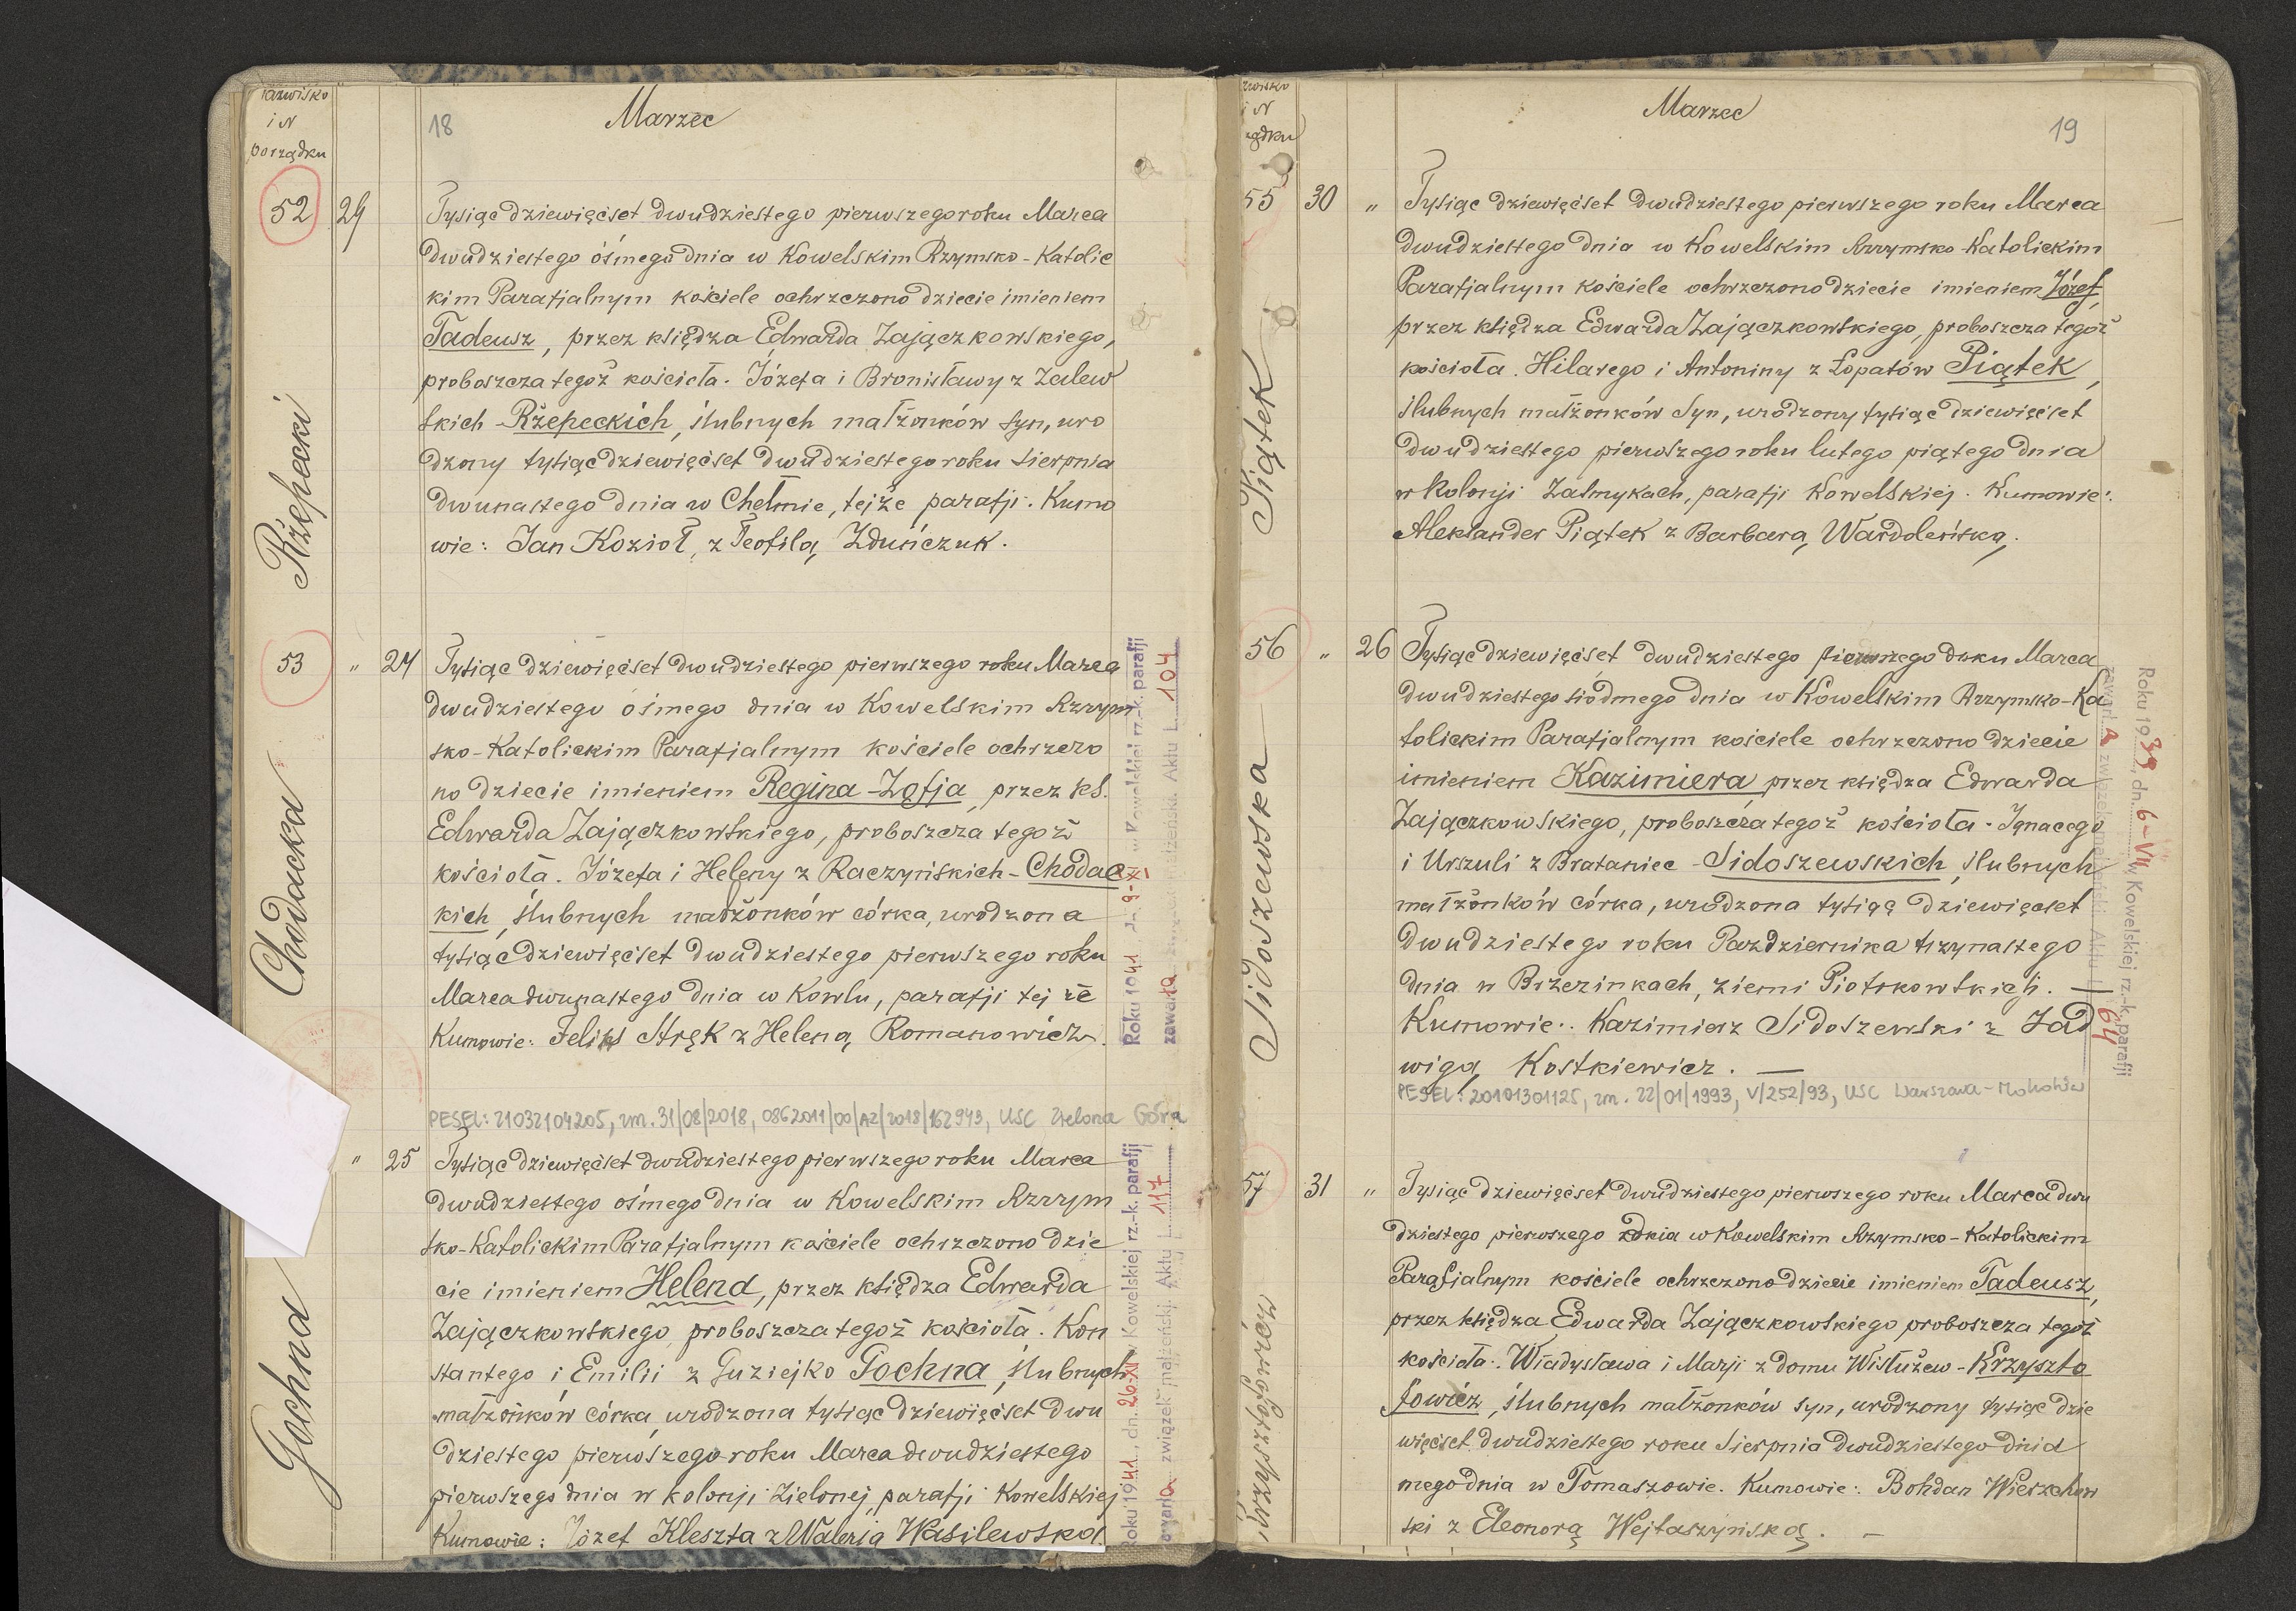 Nazwisko
i N
porządku
18
Marzec
52
29
Rżepecki
Tysiąc dziewięćset dwudziestego pierwszego roku Marca
dwudziestego ósmego dnia w Kowelskim Rzymsko-Katolic
kim Parafjalnym kościele ochrzczono dziecie imieniem
Tadeusz, przez księdza Edwarda Zajączkowskiego,
proboszcza tegoż kościoła. Józefa i Bronisławy z Zalew
skich - Rżepeckich, ślubnych małżonków syn, uro
dzony tysiąc dziewięćset dwudziestego roku sierpnia
dwunastego dnia w Chełmie, tejże parafji. Kumo
wie: Jan Kozioł, z Teofilą Zduńczuk.
53
"
24
Chodacka
Tysiąc dziewięćset dwudziestego pierwszego roku Marca
dwudziestego ósmego dnia w Kowelskim Rzzym
sko-Katolickim Parafjalnym kościele ochrzczo
no dziecie imieniem Regina-Zofja, przez ks.
Edwarda Zajączkowskiego, proboszcza tegoż
kościoła. Józefa i Heleny z Raczyńskich - Chodac
kich, ślubnych małżonków córka, urodzona
tysiąc dziewięćset dwudziestego pierwszego roku
Marca dwunastego dnia w Kowlu, parafji tej że
Kumowie: Feliks Stręk z Heleną Romanowicz.
PESEL: 21032104205, zm. 31/08/2018, 0862011/00/AZ/2018/162943, USC Zielona Góra
Roku 1941, dn. 9-XI w Kowelskiej rz.-k. parafji
zawarła związek małżeński. Aktu L. 104
"
25
Gochna
Tysiąc dziewięćset dwudziestego pierwszego roku Marca
dwudziestego ośmego dnia w Kowelskim Rzzym
sko-Katolickim Parafjalnym kościele ochrzczono dzie
cie imieniem Helena, przez księdza Edwarda
Zajączkowskiego, proboszcza tegoż kościoła. Kon
stantego i Emilii z Guziejko Gochna, ślubnych
małżonków córka, urodzona tysiąc dziewięćset dwu
dziestego pierwszego roku Marca dwudziestego
pierwszego dnia w kolonji Zielonej, parafji Kowelskiej
Kumowie: Józef Kleszta z Walerją Wasilewską.
Roku 1941, dn. 26-XII w Kowelskiej rz.-k. parafji
zawarła związek małżeński. Aktu L. 117
i N
Marzec
19
55
30
"
Piątek
Tysiąc dziewięćset dwudziestego pierwszego roku Marca
dwudziestego dnia w Kowelskim Rzzymsko-Katolickim
Parafjalnym kościele ochrzczono dziecie imieniem Józef,
przez księdza Edwarda Zajączkowskiego, proboszcza tegoż
kościoła. Hilarego i Antoniny z Łopatów Piątek,
ślubnych małżonków syn, urodzony tysiąc dziewięćset
dwudziestego pierwszego roku lutego piątego dnia
w kolonji Zatmykach, parafji Kowelskiej. Kumowie:
Aleksander Piątek z Barbarą Wardoleńską.
56
"
26
Sidoszewska
Tysiąc dziewięćset dwudziestego pierwszego roku Marca
dwudziestego siódmego dnia w Kowelskim Rzzymsko-Ka
tolickim Parafjalnym kościele ochrzczono dziecie
imieniem Kazimiera przez księdza Edwarda
Zajączkowskiego, proboszcza tegoż kościoła. Ignacego
i Urszuli z Brataniec - Sidoszewskich, ślubnych
małżonków córka, urodzona tysiąc dziewięćset
dwudziestego roku Października trzynastego
dnia w Brzezinkach, ziemi Piotrkowskiej.
Kumowie: Kazimierz Sidoszewski z Jad
wigą Kostkiewicz.
PESEL: 20101301125, zm. 22/01/1993, V/252/93, USC Warszawa-Mokotów
Roku 1939, dn. 6-VII w Kowelskiej rz.-k. parafji
zawarła związek małżeński. Aktu L. 64
57
31
"
Krzysztofowicz
Tysiąc dziewięćset dwudziestego pierwszego roku Marca dwu
dziestego pierwszego dnia w Kowelskim Rzymsko-Katolickim
Parafjalnym kościele ochrzczono dziecie imieniem Tadeusz,
przez księdza Edwarda Zajączkowskiego proboszcza tegoż
kościoła. Władysława i Marji z domu Wisłużew - Krzyszto
fowicz, ślubnych małżonków syn, urodzony tysiąc dzie
więćset dwudziestego roku Sierpnia dwudziestego
mego dnia w Tomaszowie. Kumowie: Bohdan Wierzchow
ski z Eleonorą Wejtaszyńską.